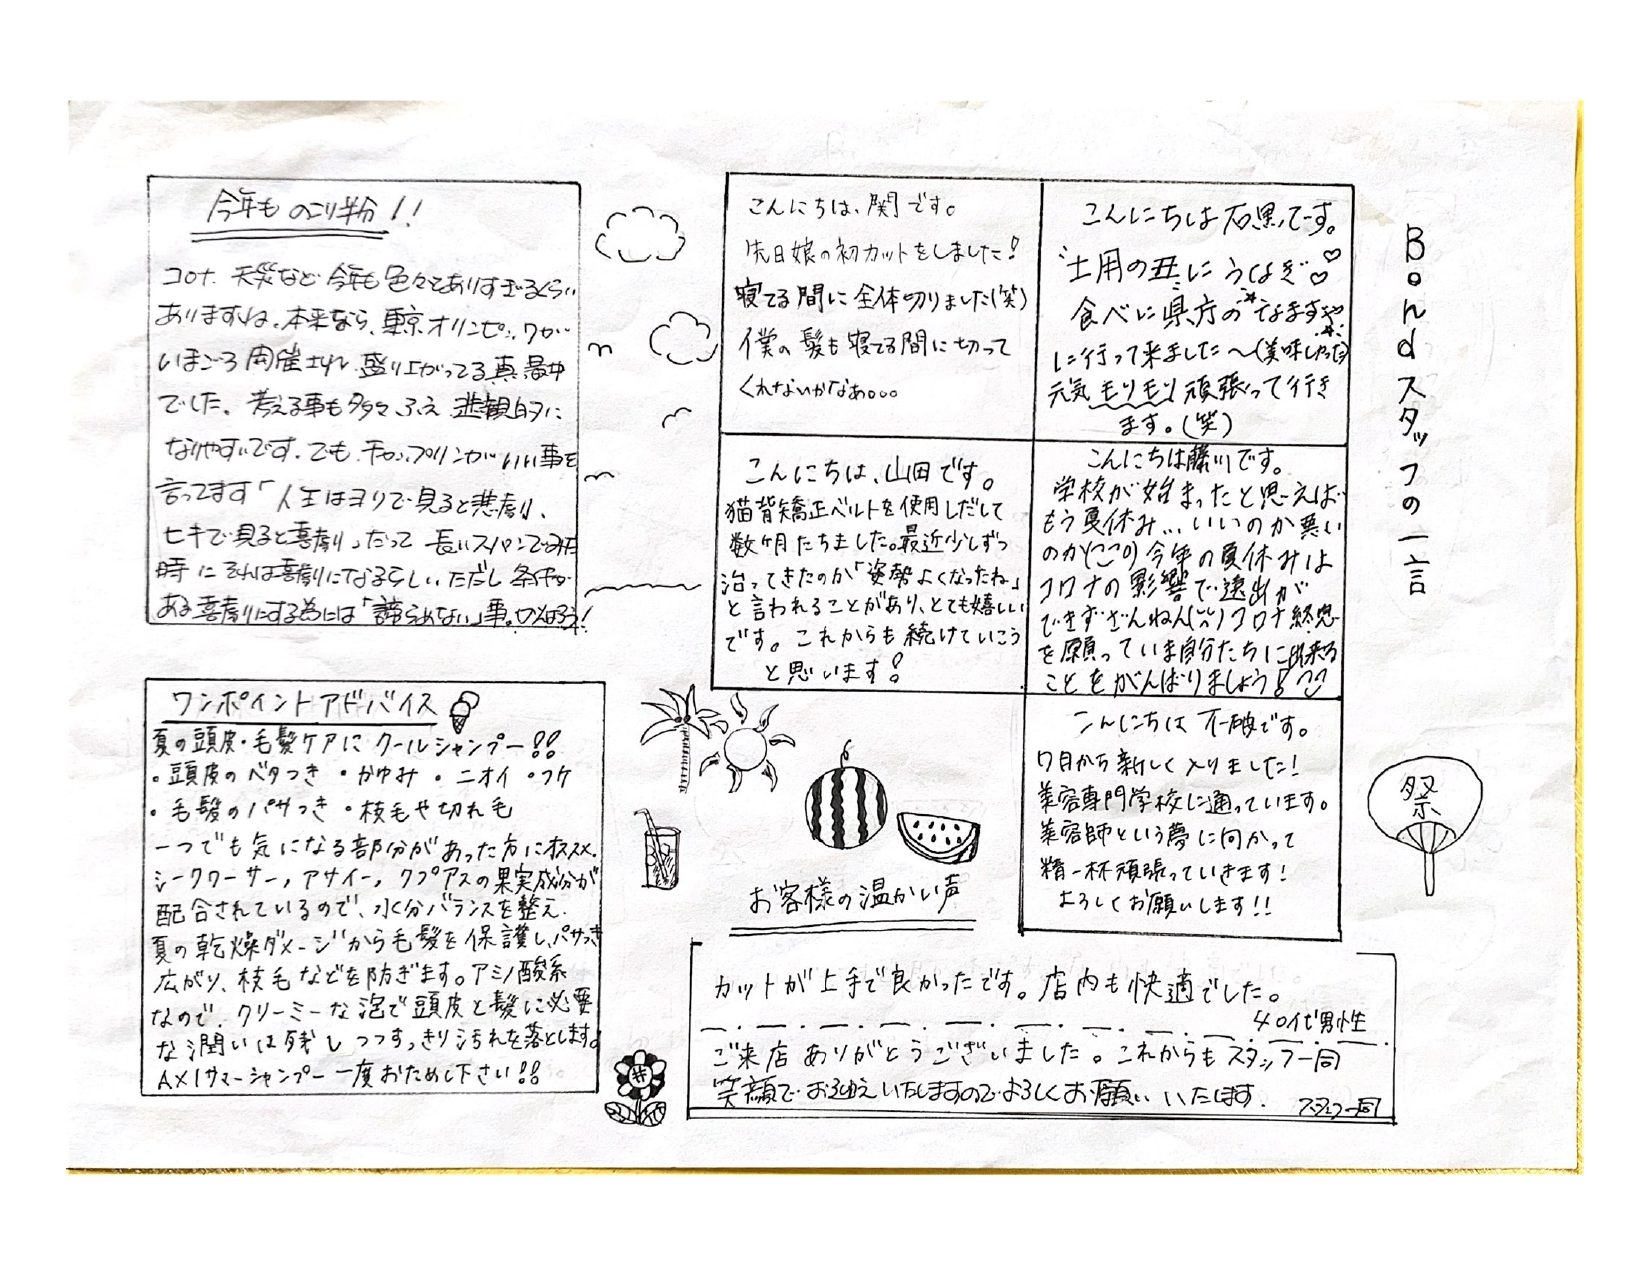 今年ものこり半分!!
コロナ、天災など今年も色々とありすぎるくらい
ありますね。本来なら、東京オリンピックが
いまごろ開催され、盛り上がってる真最中
でした。考える事も多々ふえ悲観的に
なりやすいです。でも、チャップリンがいい事を
言ってます「人生はヨリで見ると悲劇、
ヒキで見ると喜劇」だって 長いスパンでみた
時にそれは喜劇になるらしい。ただし条件が
ある喜劇にする為には「諦らめない」事。
ワンポイントアドバイス
夏の頭皮・毛髪ケアに クールシャンプー!!
・頭皮のベタつき ・かゆみ ・ニオイ ・フケ
・毛髪のパサつき ・枝毛や切れ毛
一つでも気になる部分があった方にオススメ。
シークワーサー，アサイー，クプアスの果実成分が
配合されているので、水分バランスを整え、
夏の乾燥ダメージから毛髪を保護し、パサつき
広がり、枝毛などを防ぎます。アミノ酸系
なので、クリーミーな泡で頭皮と髪に必要
な潤いは残しつつすっきり汚れを落とします。
AXIサマーシャンプー 一度おためし下さい!!
Bondスタッフの一言
こんにちは、関です。
先日娘の初カットをしました!
寝てる間に全体切りました(笑)
僕の髪も寝てる間に切って
くれないかなぁ。。。
こんにちは石黒です。
土用の丑にうなぎ♡♡
食べに県庁のなまずや
に行って来ました〜(美味しかった)
元気モリモリ頑張って行き
ます。(笑)
こんにちは、山田です。
猫背矯正ベルトを使用しだして
数ヶ月たちました。最近少しずつ
治ってきたのか「姿勢よくなったね」
と言われることがあり、とても嬉しい
です。これからも続けていこう
と思います!
こんにちは藤川です。
学校が始まったと思えば
もう夏休み...いいのか悪い
のか(ここ)今年の夏休みは
コロナの影響で遠出が
できずざんねん コロナ終息
を願っていま自分たちに出来る
ことをがんばりましょう!
こんにちは 不破です。
7月から新しく入りました!
美容専門学校に通っています。
美容師という夢に向かって
精一杯頑張っていきます!
よろしくお願いします!!
祭
お客様の温かい声
カットが上手で良かったです。店内も快適でした。
40代男性
ご来店ありがとうございました。これからもスタッフ一同
笑顔でおむかえいたしますのでよろしくお願いいたします。
スタッフ一同